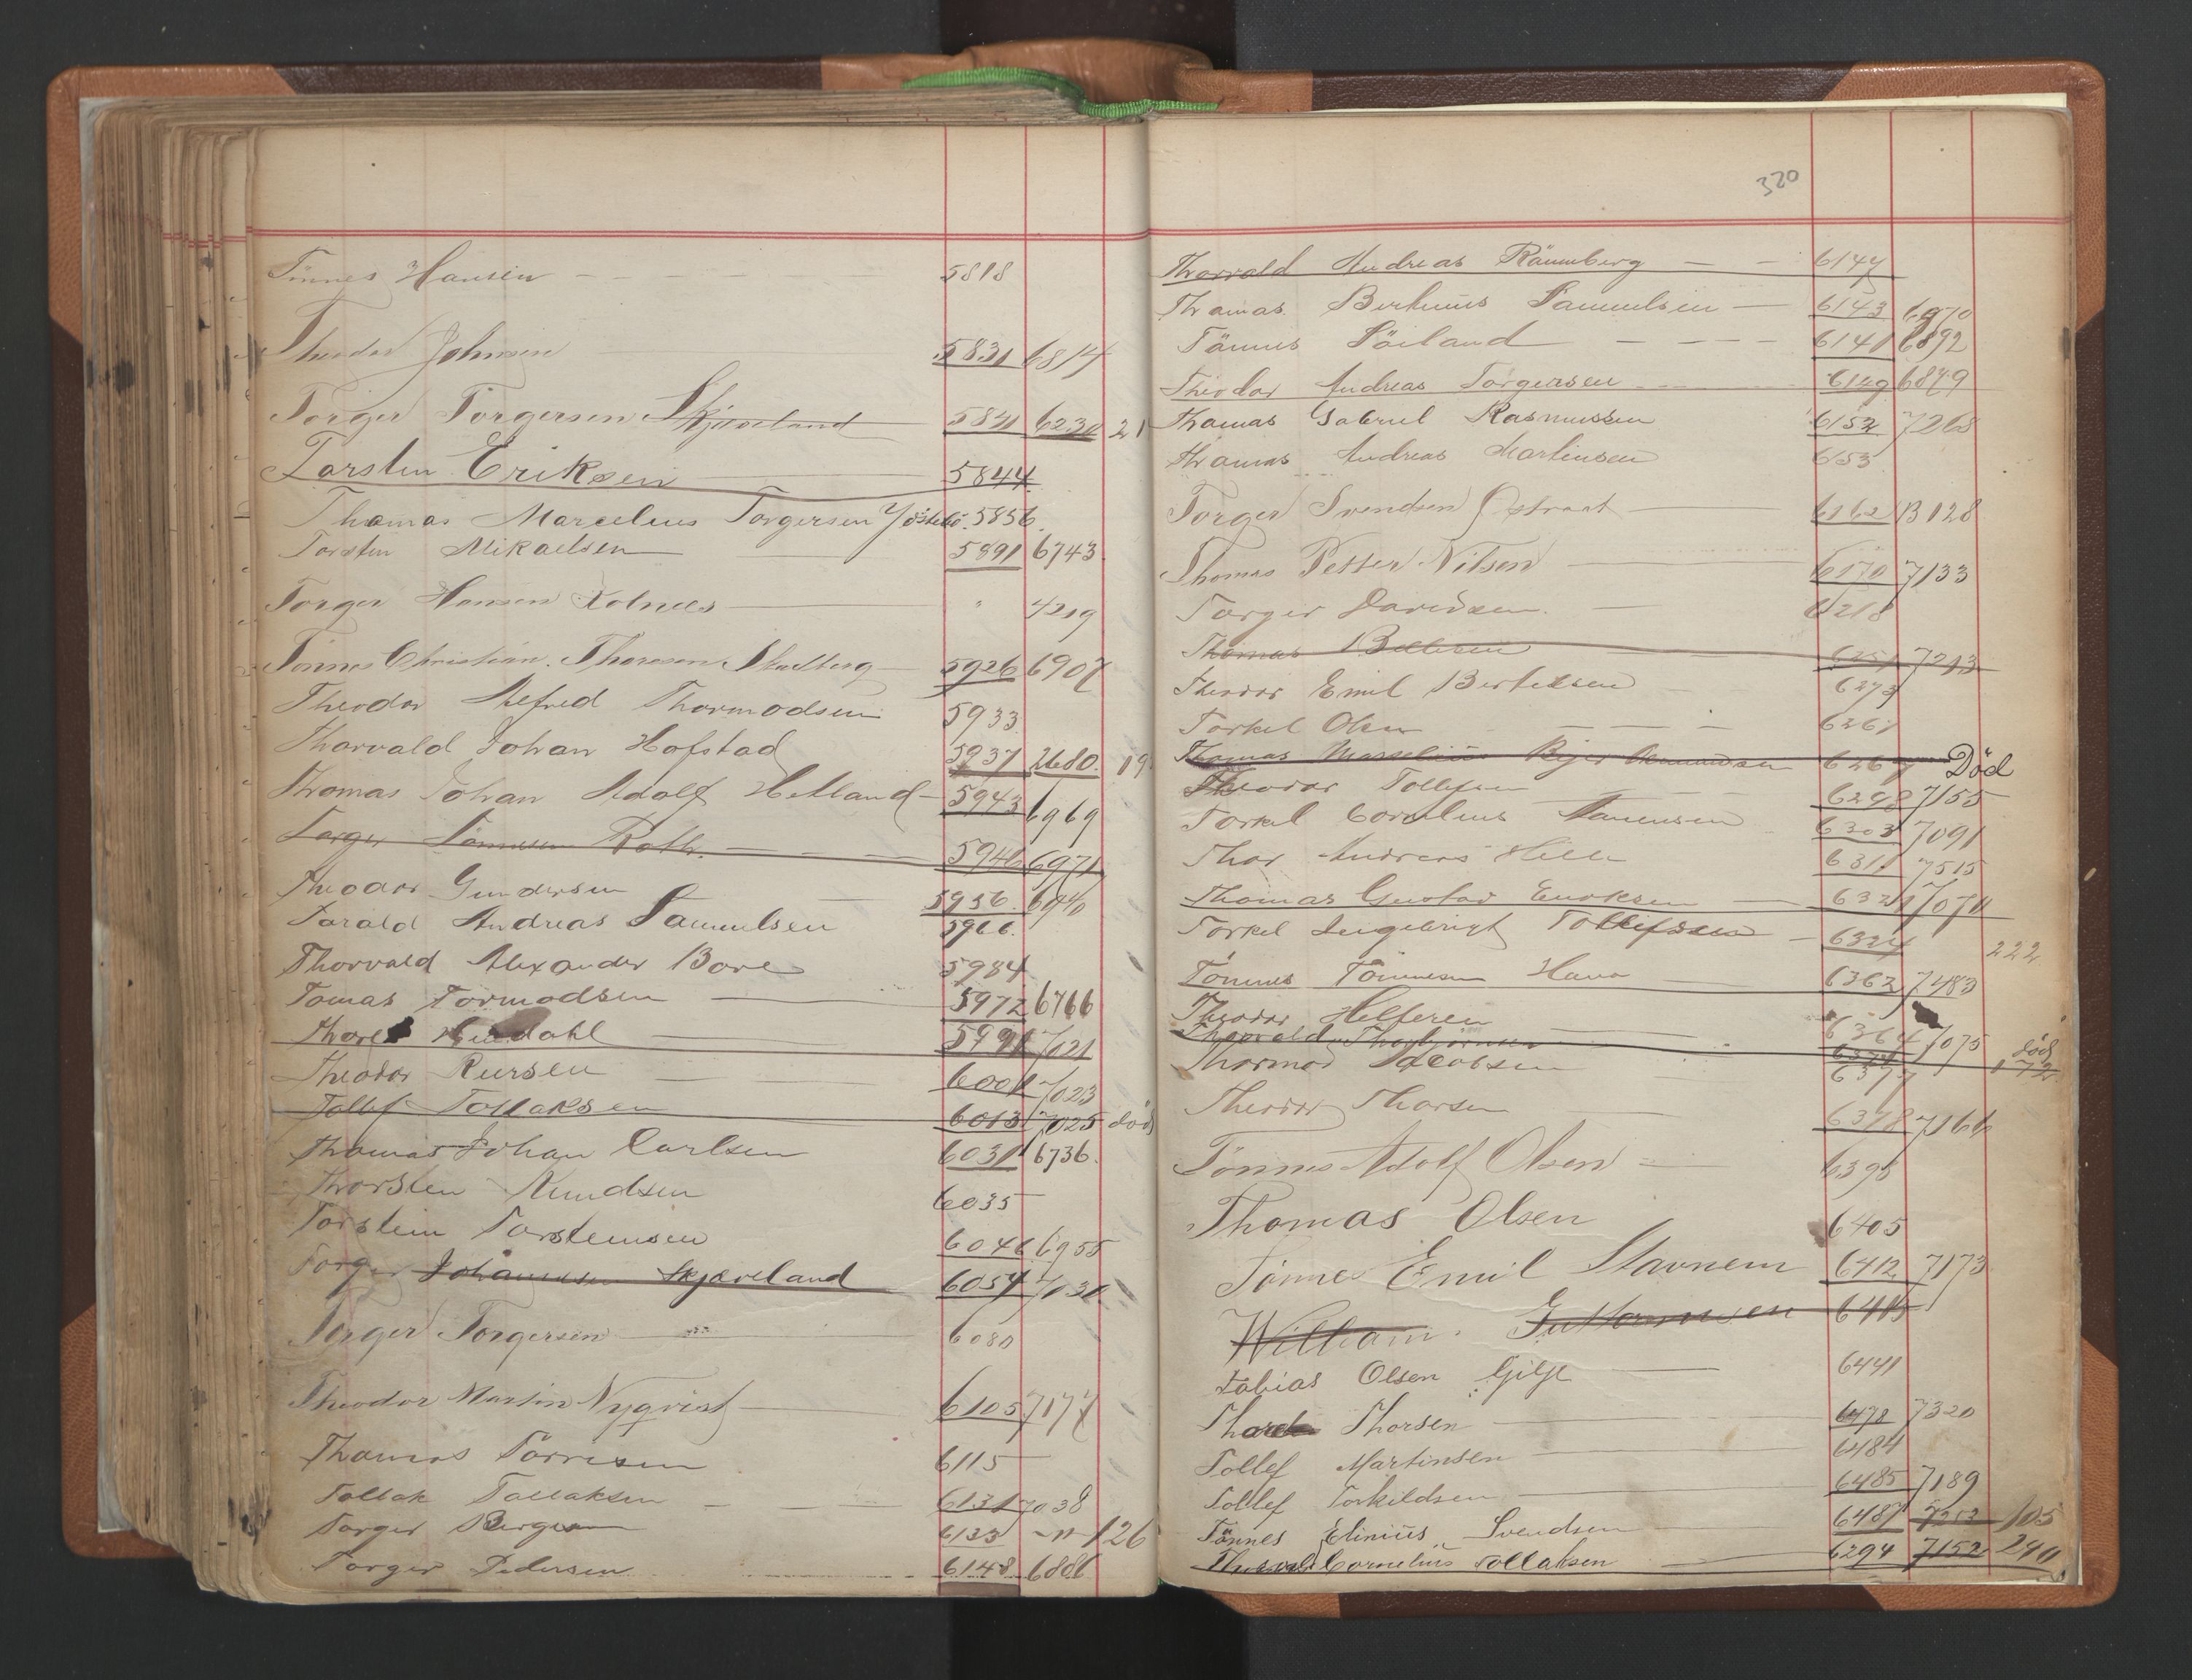 Tönnes Hansen 5818
Theodor Johnsen 5831 6814
Torger Torgersen Skjæveland 5841 6230 21
Torsten Eriksen 5844
Thomas Marcelius Torgersen 5856
Torsten Mikaelsen 5891 6743
Torger Hansen Kolnes " 4219
Tönnes Christian Thoresen Skadberg 5926 6907
Theodor Alfred Thormodsen 5933
Thorvald Johan Hofstad 5937 2680 19
Thomas Johan Adolf Hetland 5943 6969
Torger Tönnesen Roth 5946 6971
Theodor Gundersen 5956 6940
Tarald Andreas Samuelsen 5966
Thorvald Alexander Bore 5984
Tomas Tormodsen 5972 6766
Thore Hindahl 5991 7021
Theodor Iversen 6001 7023
Tollef Tollaksen 6013 7025 död
Thomas Johan Carlsen 6031 6736
Thorsten Knudsen 6035
Torstein Torsteinsen 6046 6955
Torger Johannesen Skjæveland 6054 7031
Torger Torgersen 6080
Theodor Martin Nyqvist 6105 7177
Thomas Törresen 6115
Tollak Tollaksen 6131 7038
Torger Bergesen 6133 -"- 126
Torger Pedersen 6148 6886
320
Thorvald Andreas Rännberg 6147
Thomas Berhnus Samuelsen 6143 6970
Tönnes Söiland 6141 6892
Theodor Andreas Torgersen 6149 6879
Thomas Gabriel Rasmussen 6152 7268
Thomas Andreas Martinsen 6153
Torger Svendsen Östraat 6162 B 128
Thomas Petter Nilsen 6170 7133
Torger Davidsen 6218
Thomas 6251 7213
Theodor Emil Bertelsen 6273
Torkel Olsen 6261
Thomas Marselius 6267 Död
Theodor Tollefsen 6298 7155
Torkel Cornelius 6303 7091
Thor Andreas Hille 6311 7515
Thomas Gustav Enoksen 6321 7071
Torkel Ingebrigt Tollefsen 6324 222
Tönnes Tönnesen Hana 6362 7483
Theodor Helleren 6364 7075
Thorvald Thorbjörnsen 6374 död 172
Thormod Jacobsen 6377
Theodor Thorsen 6378 7166
Tönnes Adolf Olsen 6395
Thomas Olsen 6405
Tönnes Emil Stavnem 6412 7173
William Guttormsen 6415
Tobias Olsen Gilje 6441
Thore Thorsen 6478 7320
Tollef Martinsen 6484
Tollef Torkildsen 6485 7189
Tönnes Elinius Svendsen 6487 7253 105
Thorvald Cornelius Tollaksen 6294 7152 240